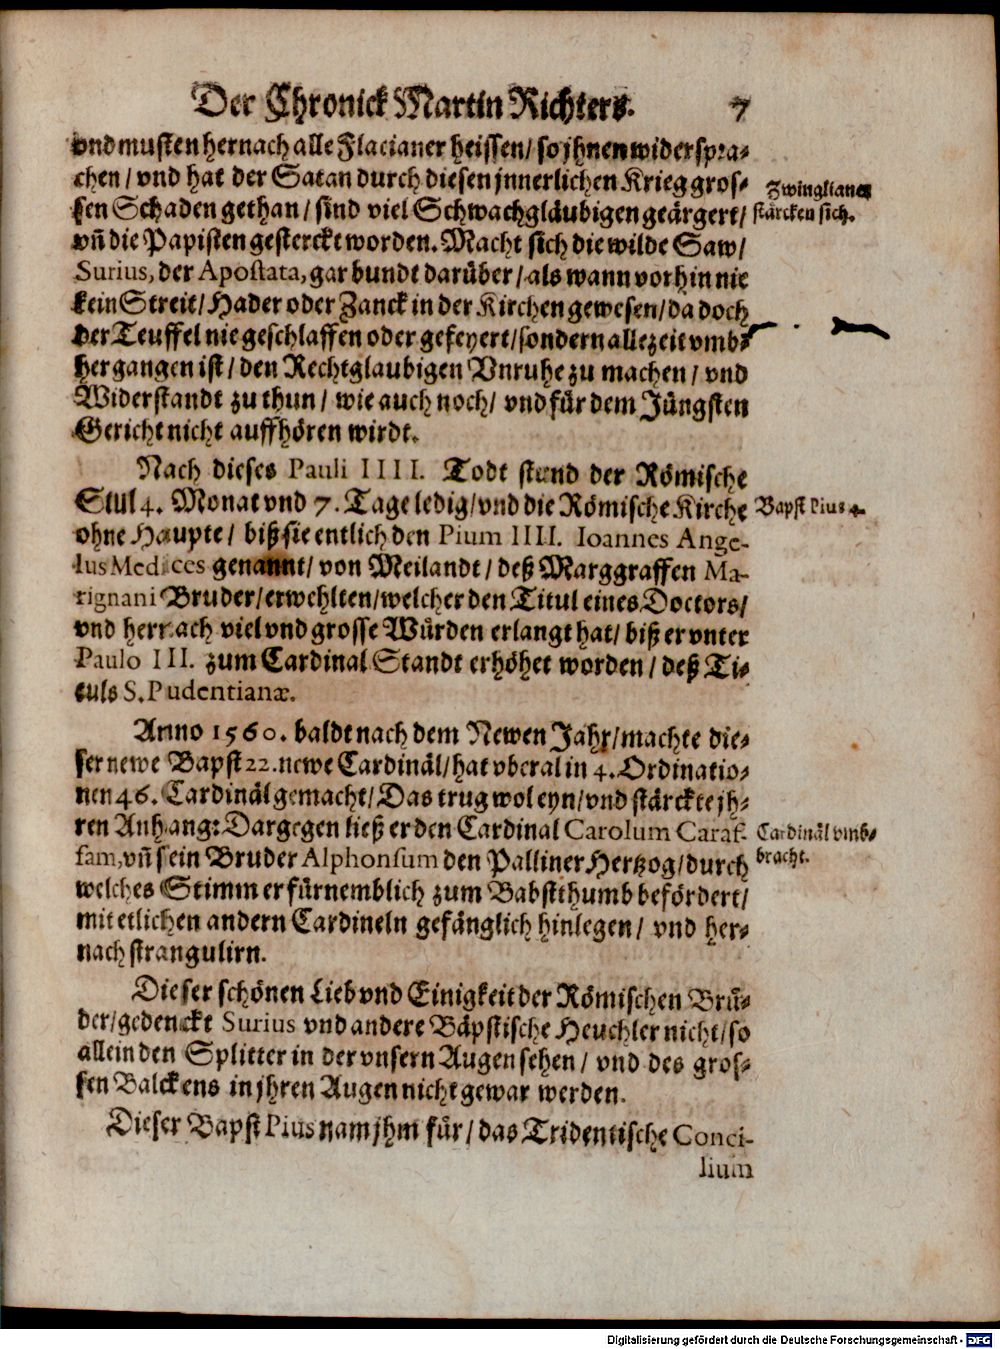 Der Chronick Martin Richters. 7
vnd musten hernach alle Flacianer heissen/ so jhnen widerspra-
chen/ vnd hat der Satan durch diesen jnnerlichen Krieg gros-
sen Schaden gethan/ sind viel Schwachgläubigen geärgert/
vñ die Papisten gesterckt worden. Macht sich die wilde Saw/
Surius, der Apostata, gar bundt darüber/ als wann vorhin nie
kein Streit/ Hader oder Zanck in der Kirchen gewesen/ da doch
der Teuffel nie geschlaffen oder gefeyert/ sondern allezeit vmb-
hergangen ist/ den Rechtglaubigen Vnruhe zu machen/ vnd
Widerstandt zu thun/ wie auch noch/ vnd für dem Jüngsten
Gericht nicht auffhören wirdt.
Zwinglianer
stärcken sich.
Nach dieses Pauli IIII. Todt stund der Römische
Stul 4. Monat vnd 7. Tage ledig/ vnd die Römische Kirche
ohne Haupte/ biß sie entlich den Pium IIII. Ioannes Ange-
lus Medices genannt/ von Meilandt/ deß Marggraffen Ma-
rignani Bruder/ erwehlten/ welcher den Titul eines Doctors/
vnd hernach viel vnd grosse Würden erlangt hat/ biß er vnter
Paulo III. zum Cardinal Standt erhöhet worden/ deß Ti-
tuls S. Pudentianæ.
Bapst Pius 4.
Anno 1560. baldt nach dem Newen Jahr/ machte die-
ser newe Bapst 22. newe Cardinäl/ hat vberal in 4. Ordinatio-
nen 46. Cardinäl gemacht/ Das trug wol eyn/ vnd stärckte jh-
ren Anhang: Dargegen ließ er den Cardinal Carolum Caraf-
fam, vñ sein Bruder Alphonsum den Palliner Hertzog/ durch
welches Stimm er fürnemblich zum Babstthumb befördert/
mit etlichen andern Cardineln gefänglich hinlegen/ vnd her-
nach strangulirn.
Cardinäl vmb-
bracht.
Dieser schönen Lieb vnd Einigkeit der Römischen Brü-
der/ gedenckt Surius vnd andere Bäpstische Heuchler nicht/ so
allein den Splitter in der vnsern Augen sehen/ vnd des gros-
sen Balckens in jhren Augen nicht gewar werden.
Dieser Bapst Pius nam jhm für/ das Tridentische Conci-
lium
Digitalisierung gefördert durch die Deutsche Forschungsgemeinschaft - DFG